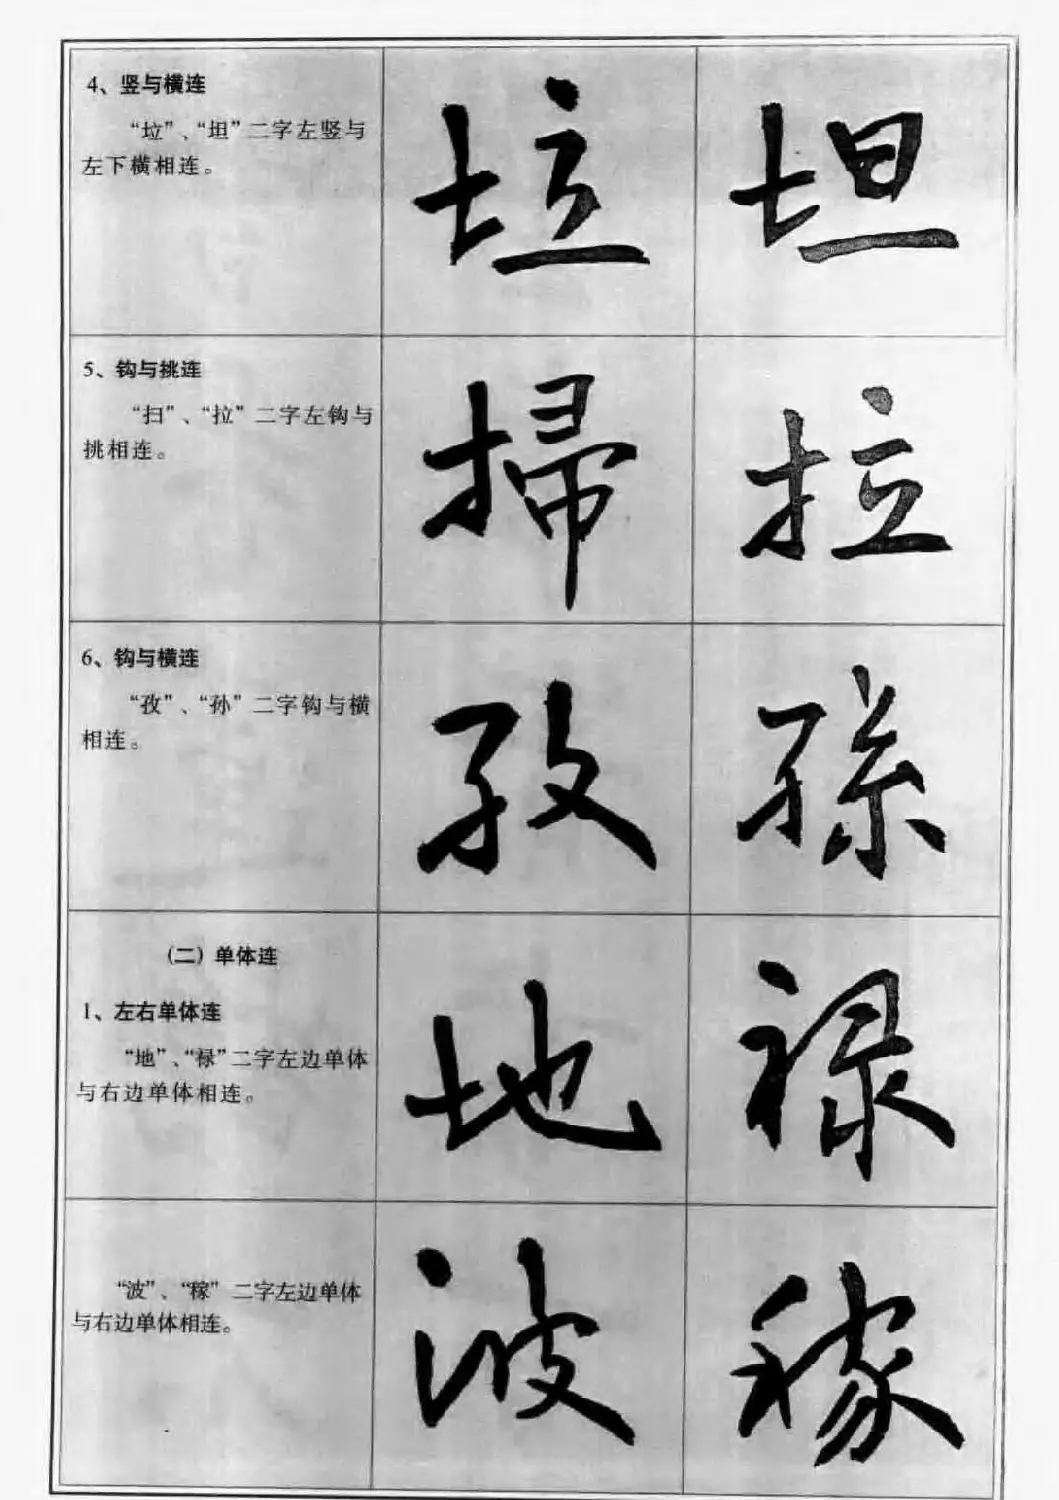 4、竖与横连
“垃”、“坦”二字左竖与
左下横相连。
垃 坦
5、钩与挑连
“扫”、“拉”二字左钩与
挑相连。
掃 拉
6、钩与横连
“孜”、“孙”二字钩与横
相连。
孜 孫
(二) 单体连
1、左右单体连
“地”、“禄”二字左边单体
与右边单体相连。
地 禄
“波”、“稼”二字左边单体
与右边单体相连。
波 稼